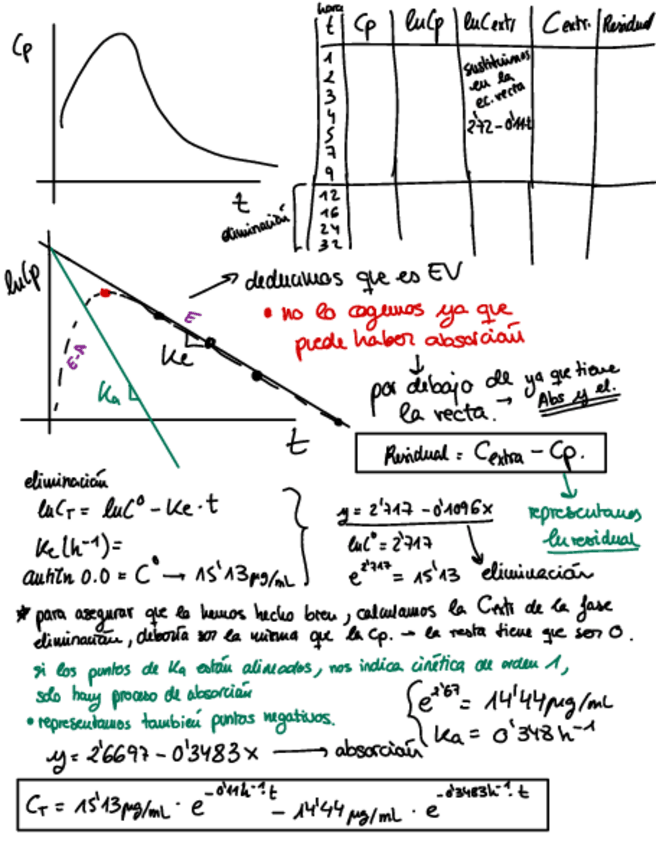 Cp
t
hora
t Cp lnCp lnCextr Cextr. Residual
1
2
3
4
5
7
9
12
16
24
32
sustituimos
en la
ec. recta
2'72-0'11t
eliminación
lnCp
E-A
Ka
Ke
E
t
deducimos que es EV
• no lo cogemos ya que
puede haber absorción
por debajo de
la recta. → ya que tiene
Abs y el.
Residual = Cextra - Cp.
representamos
ln residual
eliminación
lnCT = lnC⁰ - Ke · t
Ke(h⁻¹)=
antiln 0.0 = C⁰ → 15'13 µg/mL
y = 2'717 - 0'1096x
lnC⁰ = 2'717
e^2'717 = 15'13
eliminación
* para asegurar que lo hemos hecho bien, calculamos la Cextr de la fase
eliminación, debería ser la misma que la Cp. → la resta tiene que ser 0.
si los puntos de Ka están alineados, nos indica cinética de orden 1,
solo hay proceso de absorción
• representamos también puntos negativos.
y = 2'6697 - 0'3483x → absorción
e^2'67 = 14'44 µg/mL
Ka = 0'348 h⁻¹
CT = 15'13 µg/mL · e^-0'11h⁻¹·t - 14'44 µg/mL · e^-0'3483h⁻¹·t